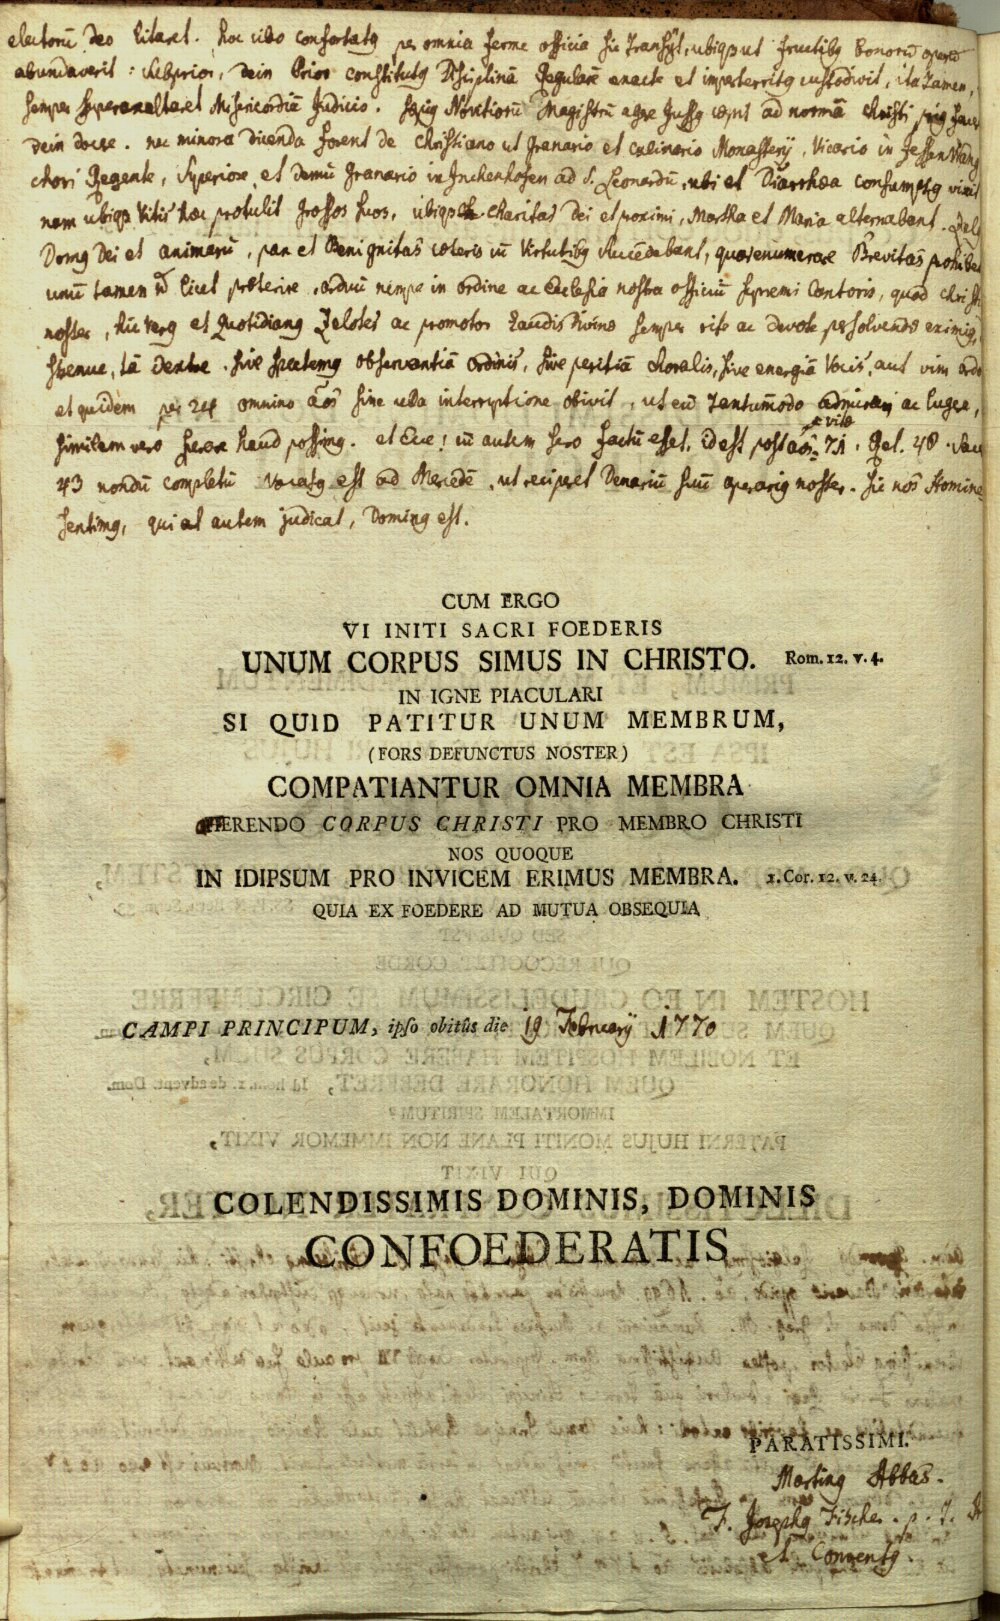 electorū Deo litaret. hoc cibo confortatꝯ per omnia ferme officia sic transÿt, ubiqs ut fructibꝯ bonorū operū
abundaverit: Subprior, dein Prior constitutꝯ Disciplinā Regularē exacte et imperterritꝯ custodivit, ita tamen,
semper superexaltaret Misericordiā Judicio. Novitiorū Magistrū agere jussꝯ cœpit ad normā Christi priꝯ facere
dein docere. nec minora dicenda forent de Christiano ut granario et culinario Monasterÿ, Vicario in
chori Regente, Superiore, et demū granario in Inchenhofen ad S. Leonardū, ubi et Diarrhœa consumptꝯ vixit
nam ubiqs Vitis hæc protulit grossos suos, ubiqs charitas Dei et proximi, Martha et Maria alternabant.
Domꝯ Dei et animarū, pax et Benignitas cœteris cū Virtutibꝯ succedebant, quas enumerare Brevitas prohibet
unū tamen licet præterire, arduū nempe in ordine ac Ecclesia nostra officiū supremi Cantoris, quod
noster, hic verꝯ et quotidianꝯ Zelotes ac promotor Laudis Divinæ semper rite ac devote persolvendæ eximiꝯ,
strenue, tā dextre, sive spectemꝯ observantiā Ordinis, sive peritiā choralis, sive energiā Vocis, aut vim
et quidem per 24 omnino aōs sine ulla interruptione obivit, ut eū tantūmodo admirari ac lugere,
similem vero sperare haud possimꝯ. et Ecce! cū autem sero factū esset, id est post aōs vitæ 71. Rel. 48.
43 nondū completū vocatꝯ est ad Mercedē, ut reciperet Denariū suū operariꝯ noster. sic nos Homines
sentimꝯ, qui at autem judicat, Dominꝯ est.
CUM ERGO
VI INITI SACRI FOEDERIS
UNUM CORPUS SIMUS IN CHRISTO. Rom. 12. v. 4.
IN IGNE PIACULARI
SI QUID PATITUR UNUM MEMBRUM,
(FORS DEFUNCTUS NOSTER)
COMPATIANTUR OMNIA MEMBRA
OFFERENDO CORPUS CHRISTI PRO MEMBRO CHRISTI
NOS QUOQUE
IN IDIPSUM PRO INVICEM ERIMUS MEMBRA. 1. Cor. 12. v. 24.
QUIA EX FOEDERE AD MUTUA OBSEQUIA
CAMPI PRINCIPUM, ipso obitûs die 19 Februarÿ 1770
COLENDISSIMIS DOMINIS, DOMINIS
CONFOEDERATIS
PARATISSIMI.
Martinꝯ Abbas.
F. Josephꝯ Fischer. p. t.
et Conventꝯ.